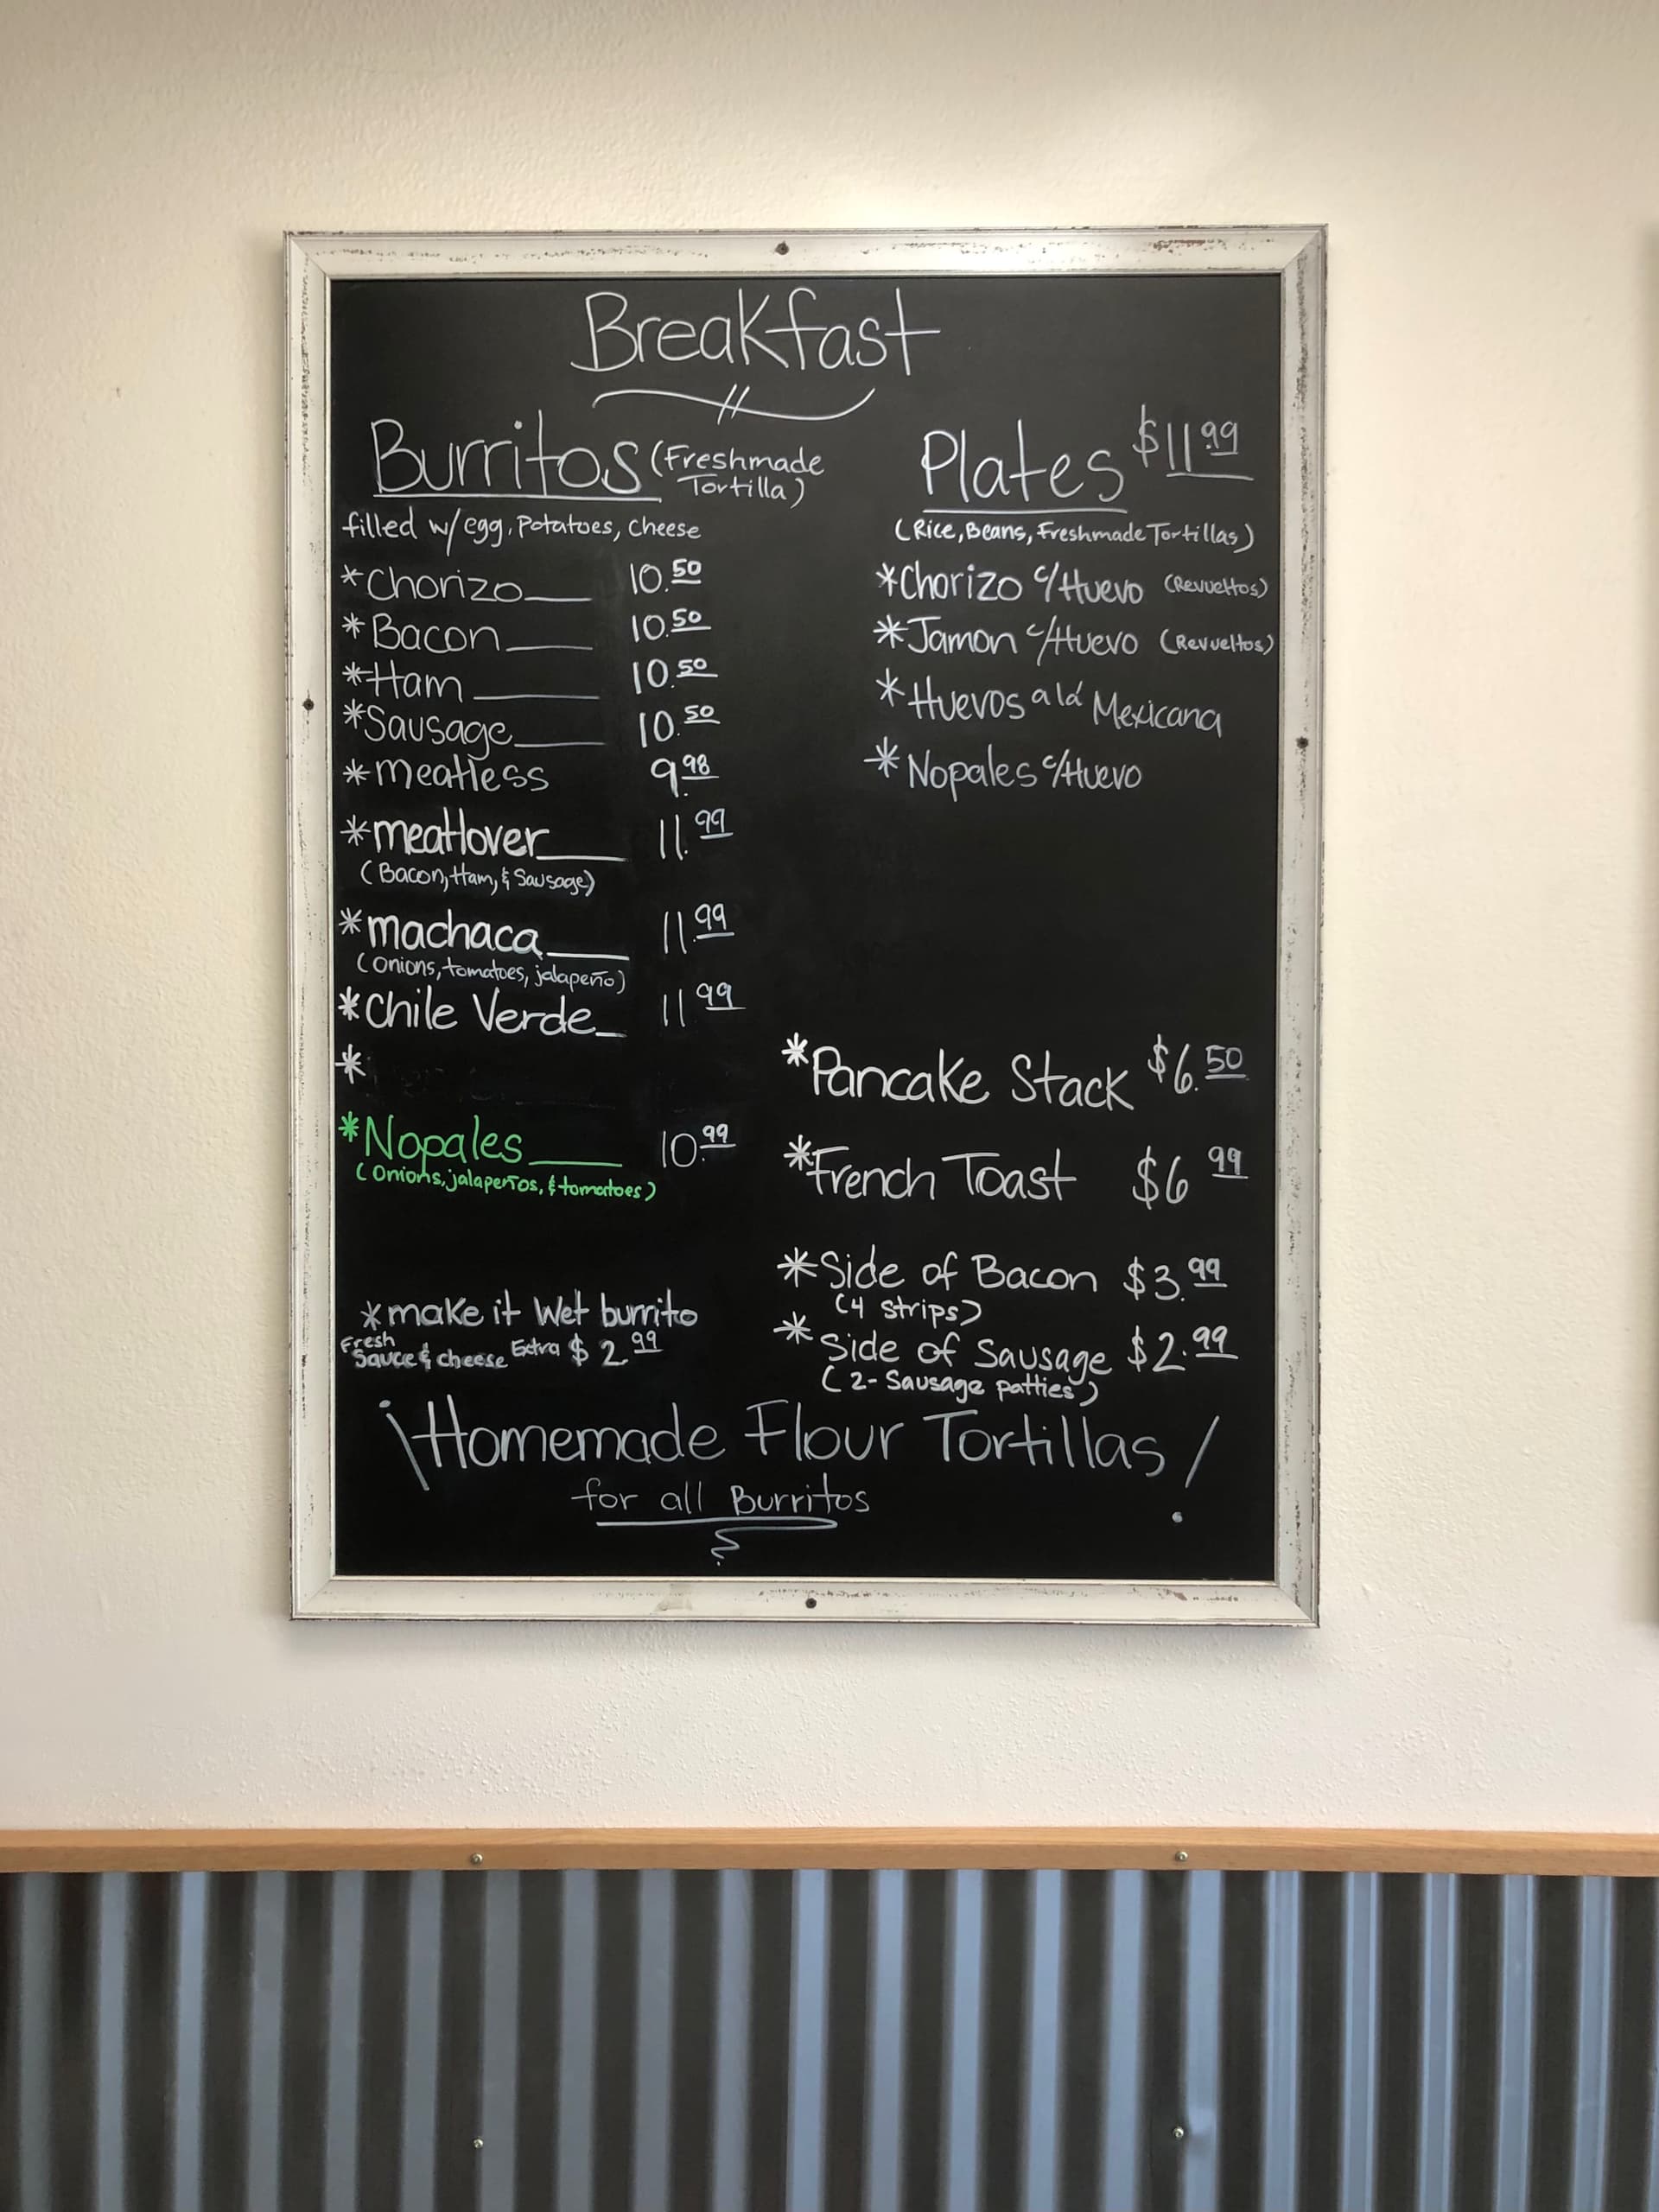 Breakfast
Burritos (Freshmade
Tortilla)
filled w/egg, Potatoes, Cheese
*Chorizo 10.50
*Bacon 10.50
*Ham 10.50
*Sausage 10.50
*meatless 9.98
*meatlover 11.99
(Bacon, Ham, & Sausage)
*machaca 11.99
(Onions, tomatoes, jalapeño)
*Chile Verde 11.99
*
*Nopales 10.99
(Onions, jalapeños, & tomatoes)
*make it Wet burrito
Fresh
Sauce & cheese Extra $2.99
Plates $11.99
(Rice, Beans, Freshmade Tortillas)
*Chorizo c/Huevo (Revueltos)
*Jamon c/Huevo (Revueltos)
*Huevos a lá Mexicana
*Nopales c/Huevo
*Pancake Stack $6.50
*French Toast $6 99
*Side of Bacon $3.99
(4 strips)
*Side of Sausage $2.99
(2-Sausage patties)
¡Homemade Flour Tortillas!
for all Burritos